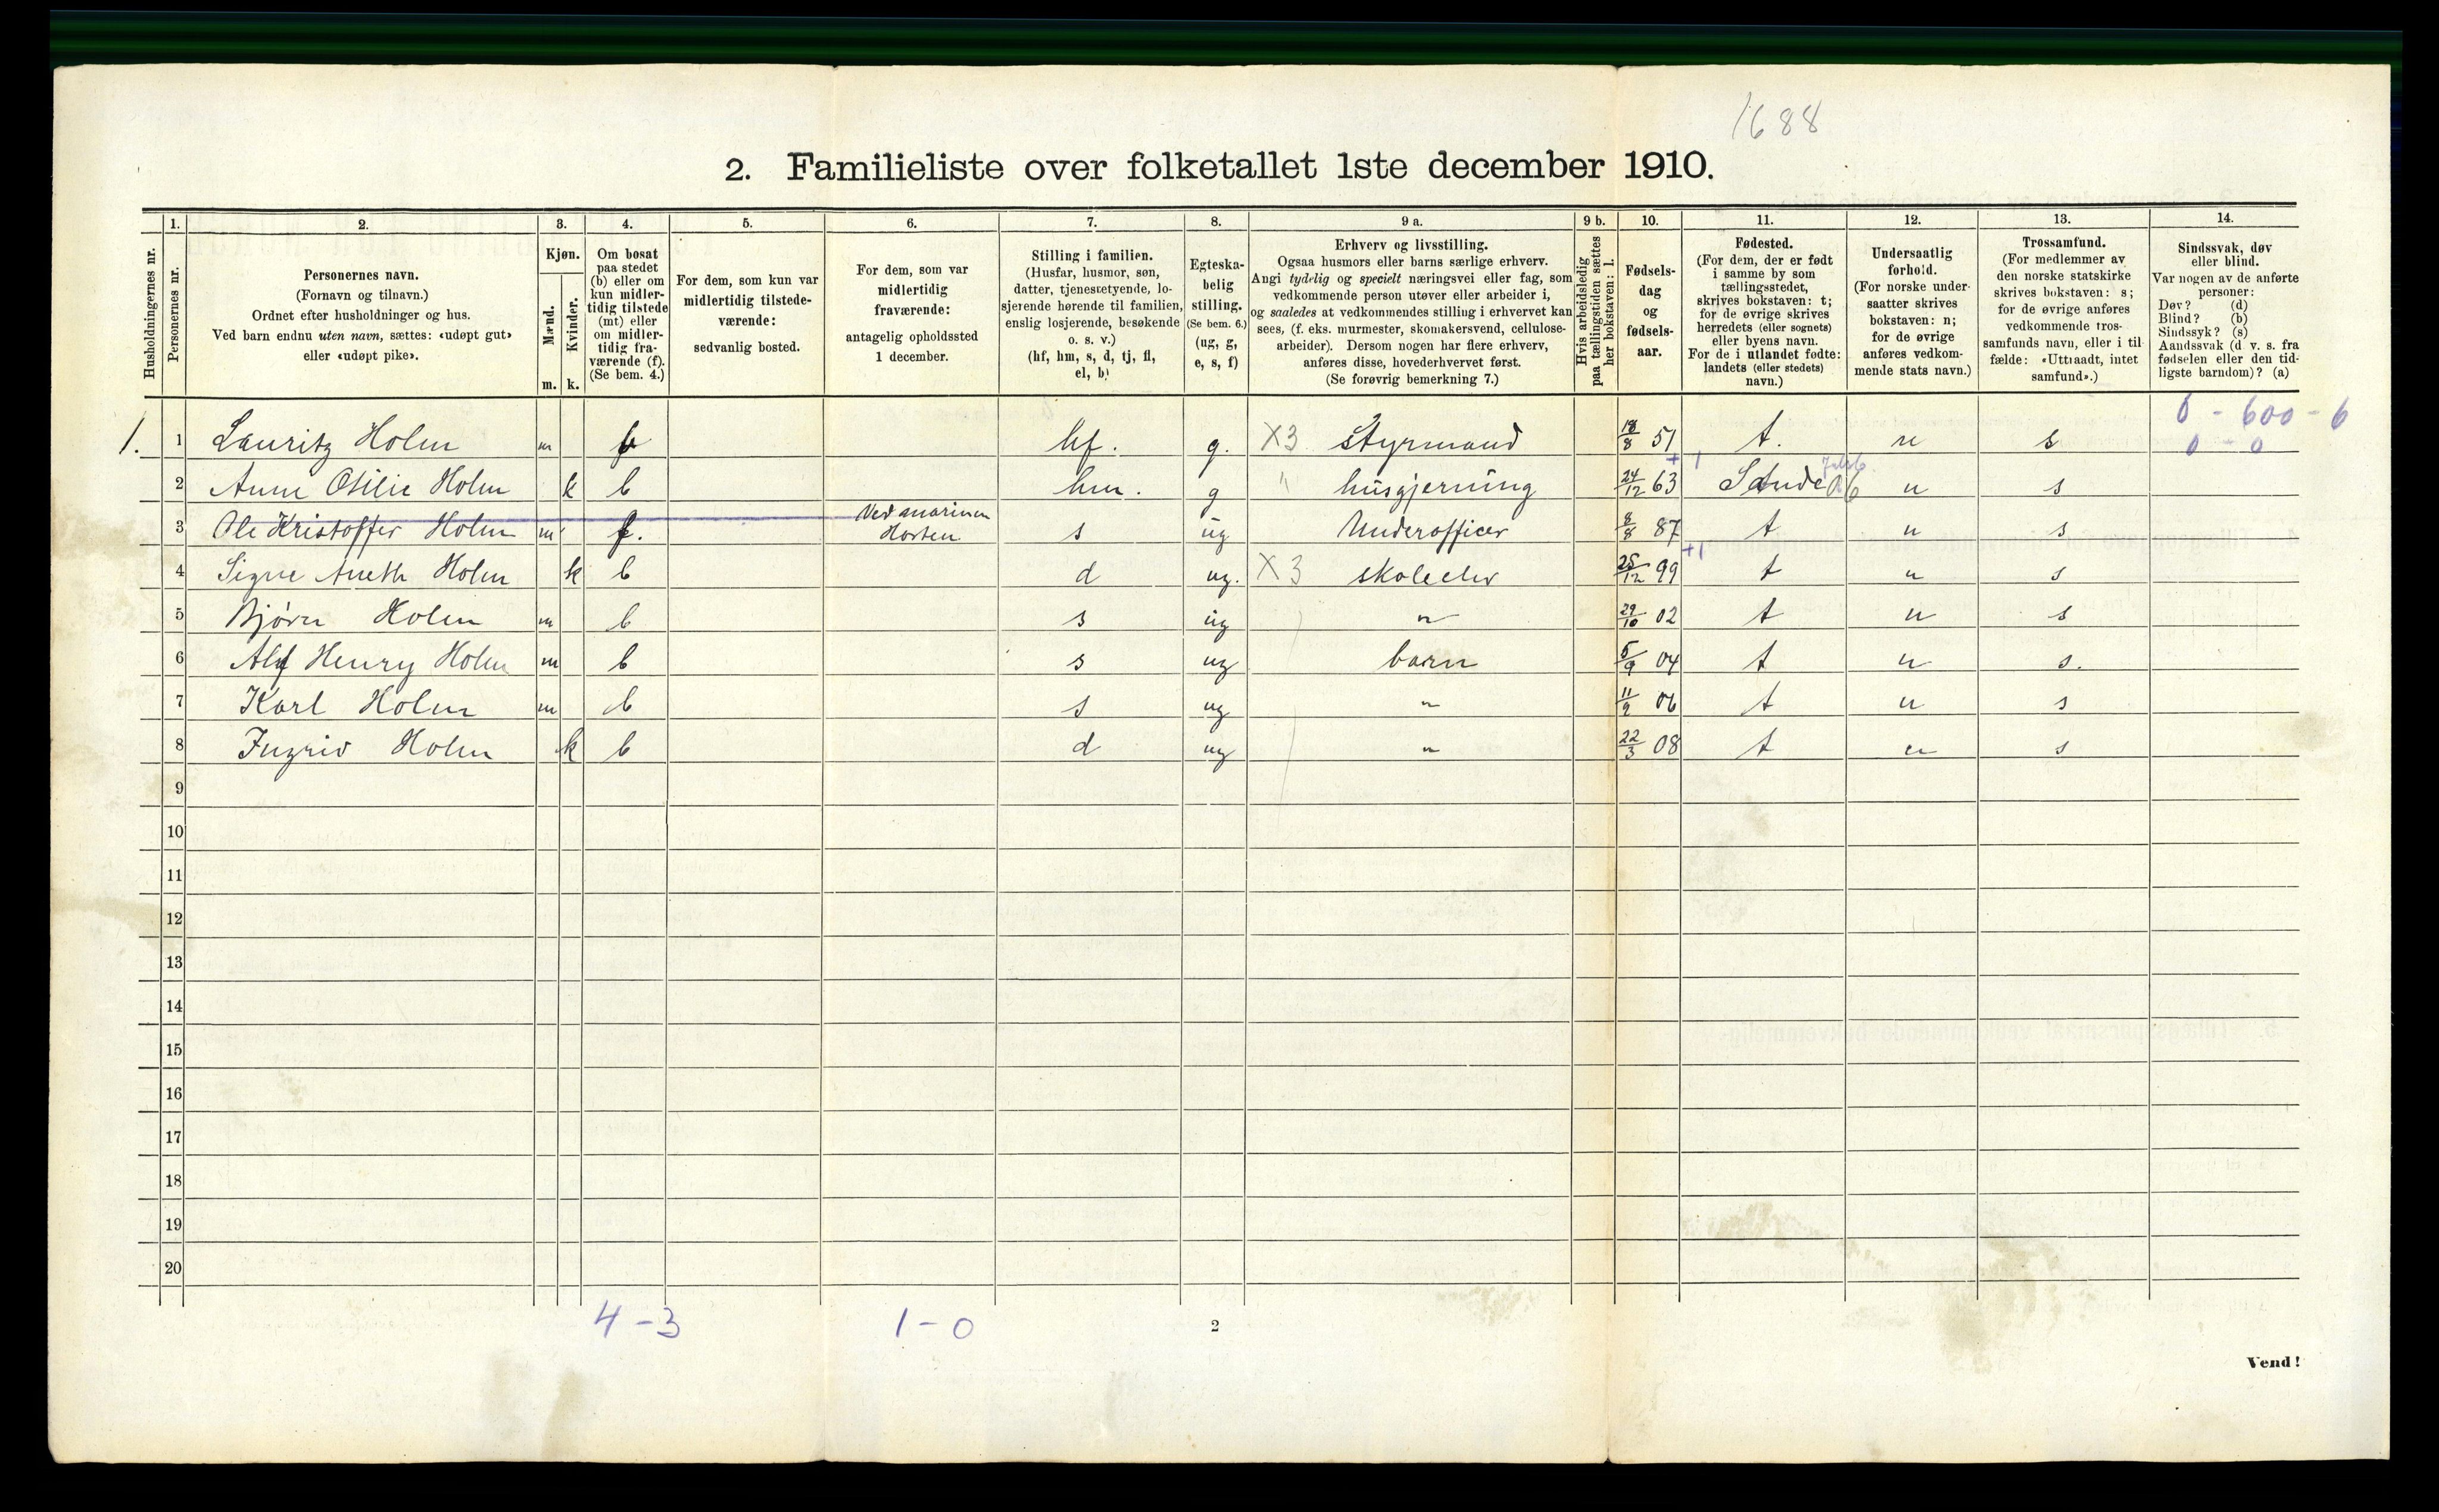 1688
2. Familieliste over folketallet 1ste december 1910.
Husholdningernes nr.
1.
Personernes nr.
2.
Personernes navn.
(Fornavn og tilnavn.)
Ordnet efter husholdninger og hus.
Ved barn endnu uten navn, sættes: «udøpt gut»
eller «udøpt pike».
3.
Kjøn.
Mænd.
Kvinder.
m. k.
4.
Om bosat
paa stedet
(b) eller om
kun midler-
tidig tilstede
(mt) eller
om midler-
tidig fra-
værende (f).
(Se bem. 4.)
5.
For dem, som kun var
midlertidig tilstede-
værende:
sedvanlig bosted.
6.
For dem, som var
midlertidig
fraværende:
antagelig opholdssted
1 december.
7.
Stilling i familien.
(Husfar, husmor, søn,
datter, tjenestetyende, lo-
sjerende hørende til familien,
enslig losjerende, besøkende
o. s. v.)
(hf, hm, s, d, tj, fl,
el, b)
8.
Egteska-
belig
stilling.
(Se bem. 6.)
(ug, g,
e, s, f)
9 a.
Erhverv og livsstilling.
Ogsaa husmors eller barns særlige erhverv.
Angi tydelig og specielt næringsvei eller fag, som
vedkommende person utøver eller arbeider i,
og saaledes at vedkommendes stilling i erhvervet kan
sees, (f. eks. murmester, skomakersvend, cellulose-
arbeider). Dersom nogen har flere erhverv,
anføres disse, hovederhvervet først.
(Se forøvrig bemerkning 7.)
9 b.
Hvis arbeidsledig
paa tællingstiden sættes
her bokstaven: l.
10.
Fødsels-
dag
og
fødsels-
aar.
11.
Fødested.
(For dem, der er født
i samme by som
tællingsstedet,
skrives bokstaven: t;
for de øvrige skrives
herredets (eller sognets)
eller byens navn.
For de i utlandet fødte:
landets (eller stedets)
navn.)
12.
Undersaatlig
forhold.
(For norske under-
saatter skrives
bokstaven: n;
for de øvrige
anføres vedkom-
mende stats navn.)
13.
Trossamfund.
(For medlemmer av
den norske statskirke
skrives bokstaven: s;
for de øvrige anføres
vedkommende tros-
samfunds navn, eller i til-
fælde: «Uttraadt, intet
samfund».)
14.
Sindssvak, døv
eller blind.
Var nogen av de anførte
personer:
Døv? (d)
Blind? (b)
Sindssyk? (s)
Aandssvak (d. v. s. fra
fødselen eller den tid-
ligste barndom)? (a)
0 - 600 - 6
0 - 0
1. 1 Lauritz Holm m b hf. g. X3 Styrmand 18/8 51 t. n s
2 Anne Otilie Holm k b hm. g " husgjerning 24/12 63 Sande n s
3 Ole Kristoffer Holm m f. Ved marinen Horten s ug Underofficer 8/8 87 t n s
4 Signe Aneth Holm k b d ug. X3 skoleelev 25/12 99 t n s
5 Bjørn Holm m b s ug " 29/10 02 t n s
6 Alf Henry Holm m b s ug barn 5/9 04 t n s.
7 Karl Holm m b s ug " 11/9 06 t n s
8 Ingrid Holm k b d ug " 22/3 08 t n s
9
10
11
12
13
14
15
16
17
18
19
20
4 - 3 1 - 0
2
Vend!